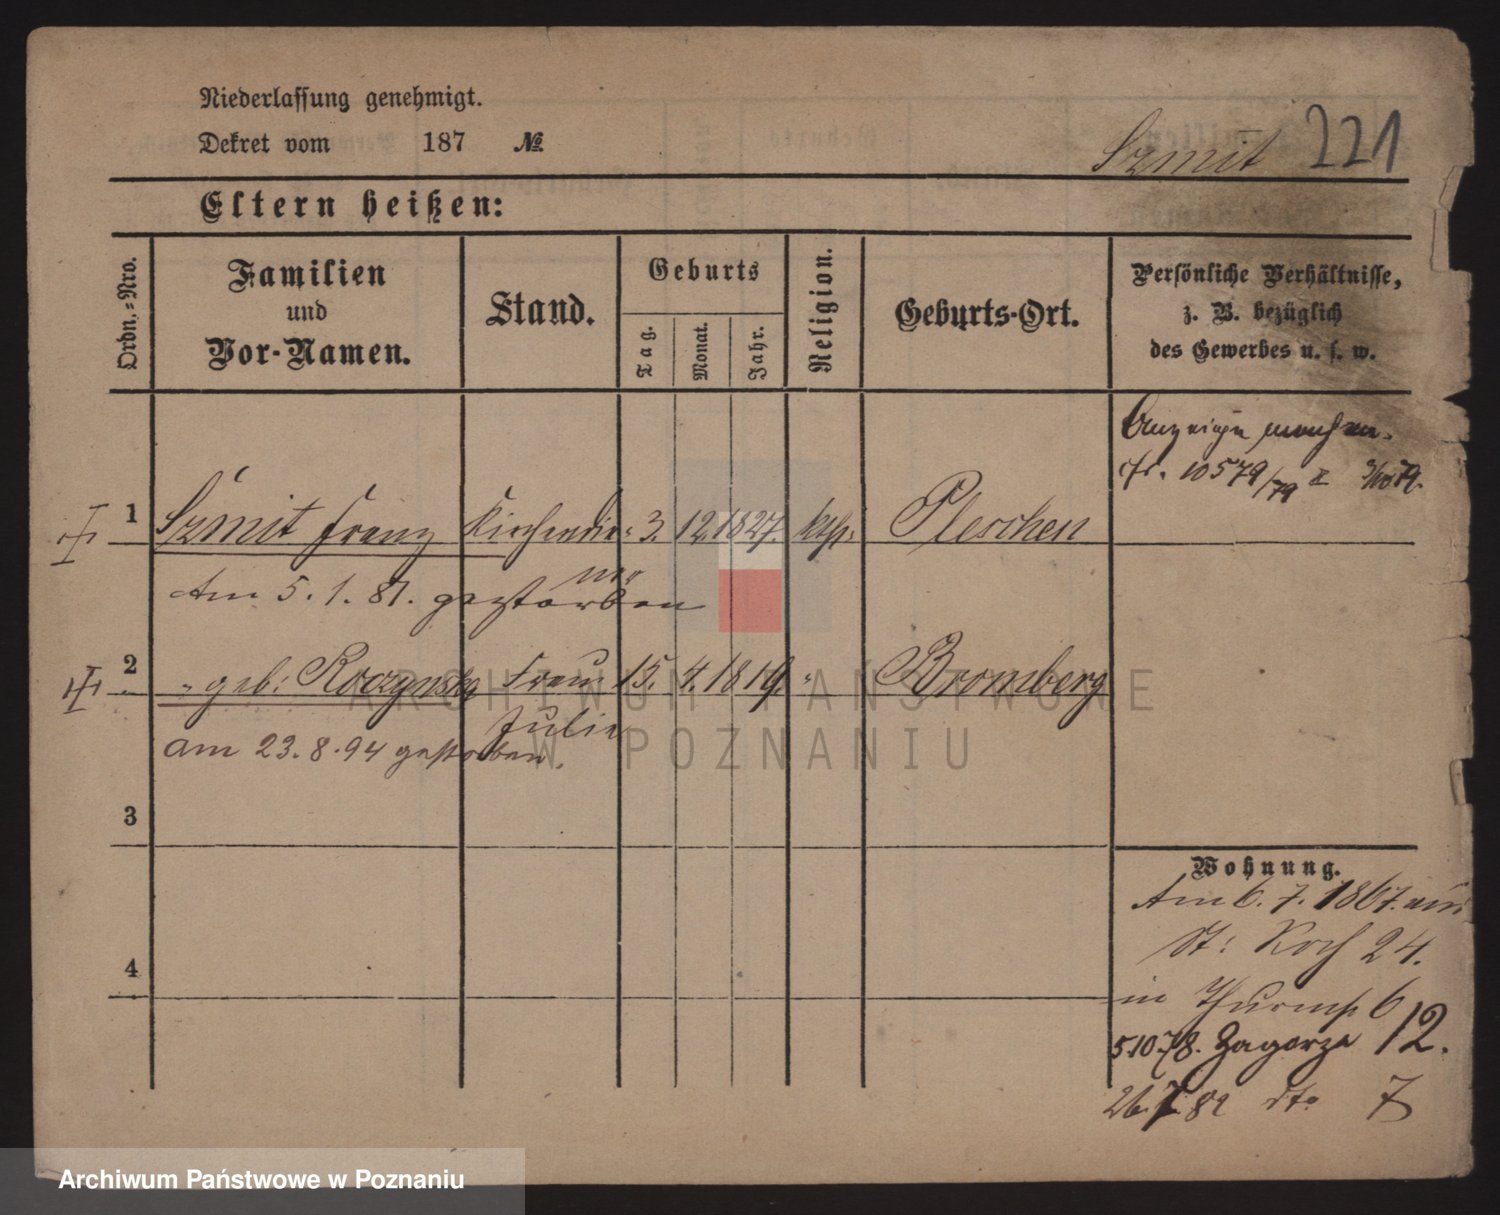 Niederlassung genehmigt.
Dekret vom 187 №
Szmit 221
Eltern heißen:
Ordn.-Nro.
Familien
und
Vor-Namen.
Stand.
Geburts
Tag.
Monat.
Jahr.
Religion.
Geburts-Ort.
Persönliche Verhältnisse,
z. B. bezüglich
des Gewerbes u. s. w.
Anzeige machen.
10579/79 II
1 Szmit Franz Kirchendie- 3. 12. 1827. kth: Pleschen
ner
Am 5. 1. 81. gestorben
2 " geb: Roczynska Frau 15. 4. 1819. " Bromberg
Julie
am 23. 8. 94 gestorben.
3
4
Wohnung.
Am 6. 7. 1867. aus
St: Roch 24.
in Thurmstr 6
5.10.78. Zagorze 12.
26.7.82 dto 7
ARCHIWUM PAŃSTWOWE
W POZNANIU
Archiwum Państwowe w Poznaniu